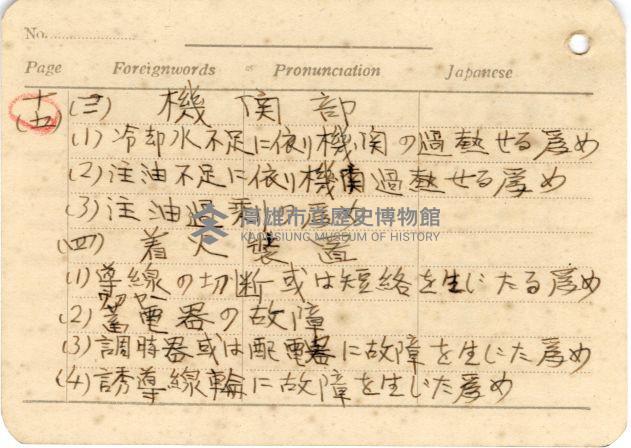 No.
Page Foreignwords Pronunciation Japanese
十(五) (三) 機関部
(1) 冷却水不足に依り機関の過熱せる為め
(2) 注油不足に依り機関過熱せる為め
(3) 注油過剰の為め
高雄市立歷史博物館
KAOHSIUNG MUSEUM OF HISTORY
(四) 着火装置
(1) 導線の切断或は短絡を生じたる為め
(2) 蓄電器の故障
(3) 調時器或は配電器に故障を生じた為め
(4) 誘導線輪に故障を生じた為め